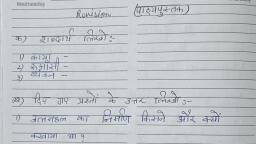 Wednesday
Revision (पाठ्यपुस्तक)
क) शब्दार्थ लिखो :-
1) काया -
2) रुआंसी -
3) व्यंजन -
ख) दिए गए प्रश्नों के उत्तर लिखो :-
1) जलमहल का निर्माण किसने और क्यों
करवाया था ?